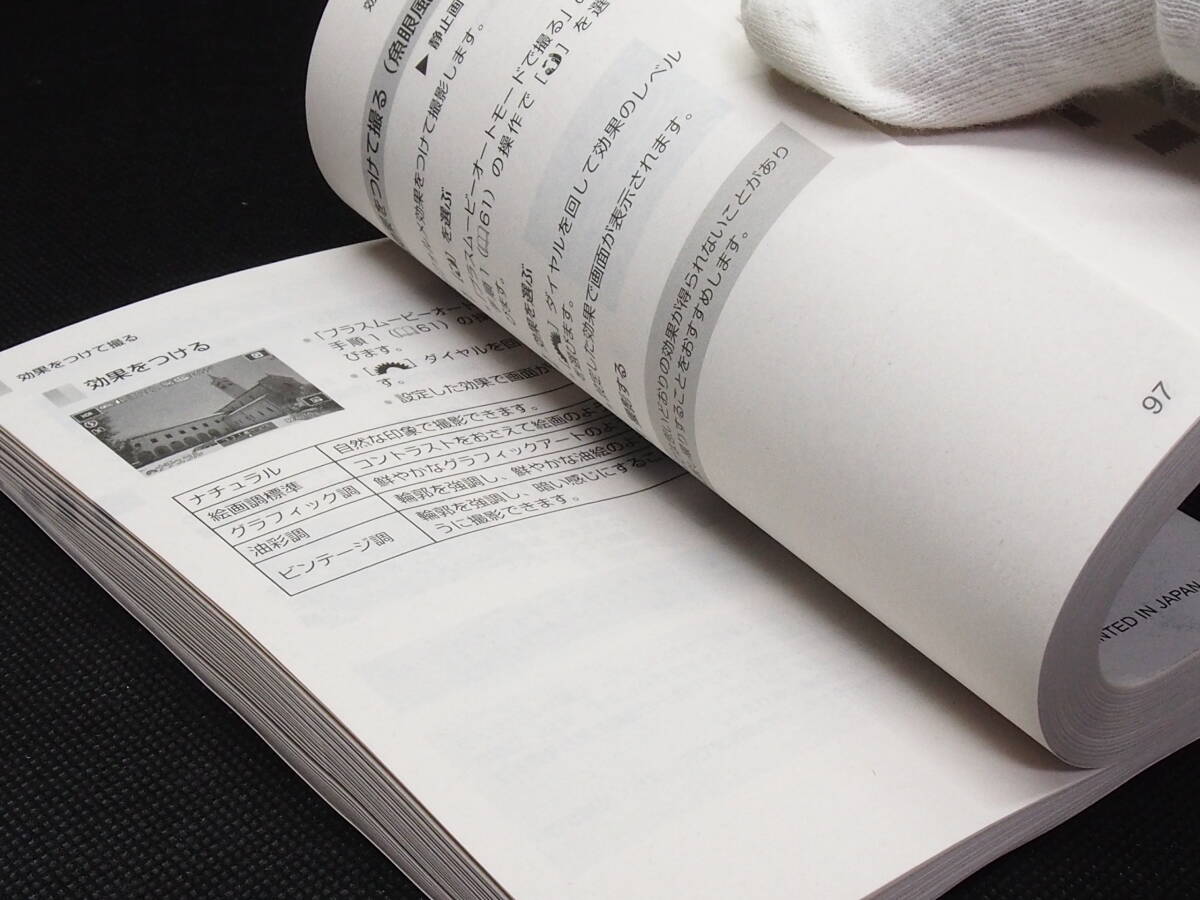 効果をつけて撮る
効果をつける
[プラスムービーオート
手順1(61)の
びます。
[ ]ダイヤルを回
す。
設定した効果で画面が
ナチュラル 自然な印象で撮影できます。
絵画調標準 コントラストをおさえて絵画のよ
グラフィック調 鮮やかなグラフィックアートのよ
油彩調 輪郭を強調し、鮮やかな油絵のよ
ビンテージ調 輪郭を強調し、暗い感じにするこ
うに撮影できます。
をつけて撮る(魚眼風
▶ 静止画
効果をつけて撮影します。
[ ]を選ぶ
プラスムービーオートモードで撮る」
手順1(61)の操作で[ ]を選
ます。
効果を選ぶ
[ ]ダイヤルを回して効果のレベル
を選びます。
設定した効果で画面が表示されます。
撮影する
思いどおりの効果が得られないことがあり
撮りすることをおすすめします。
97
NTED IN JAPAN